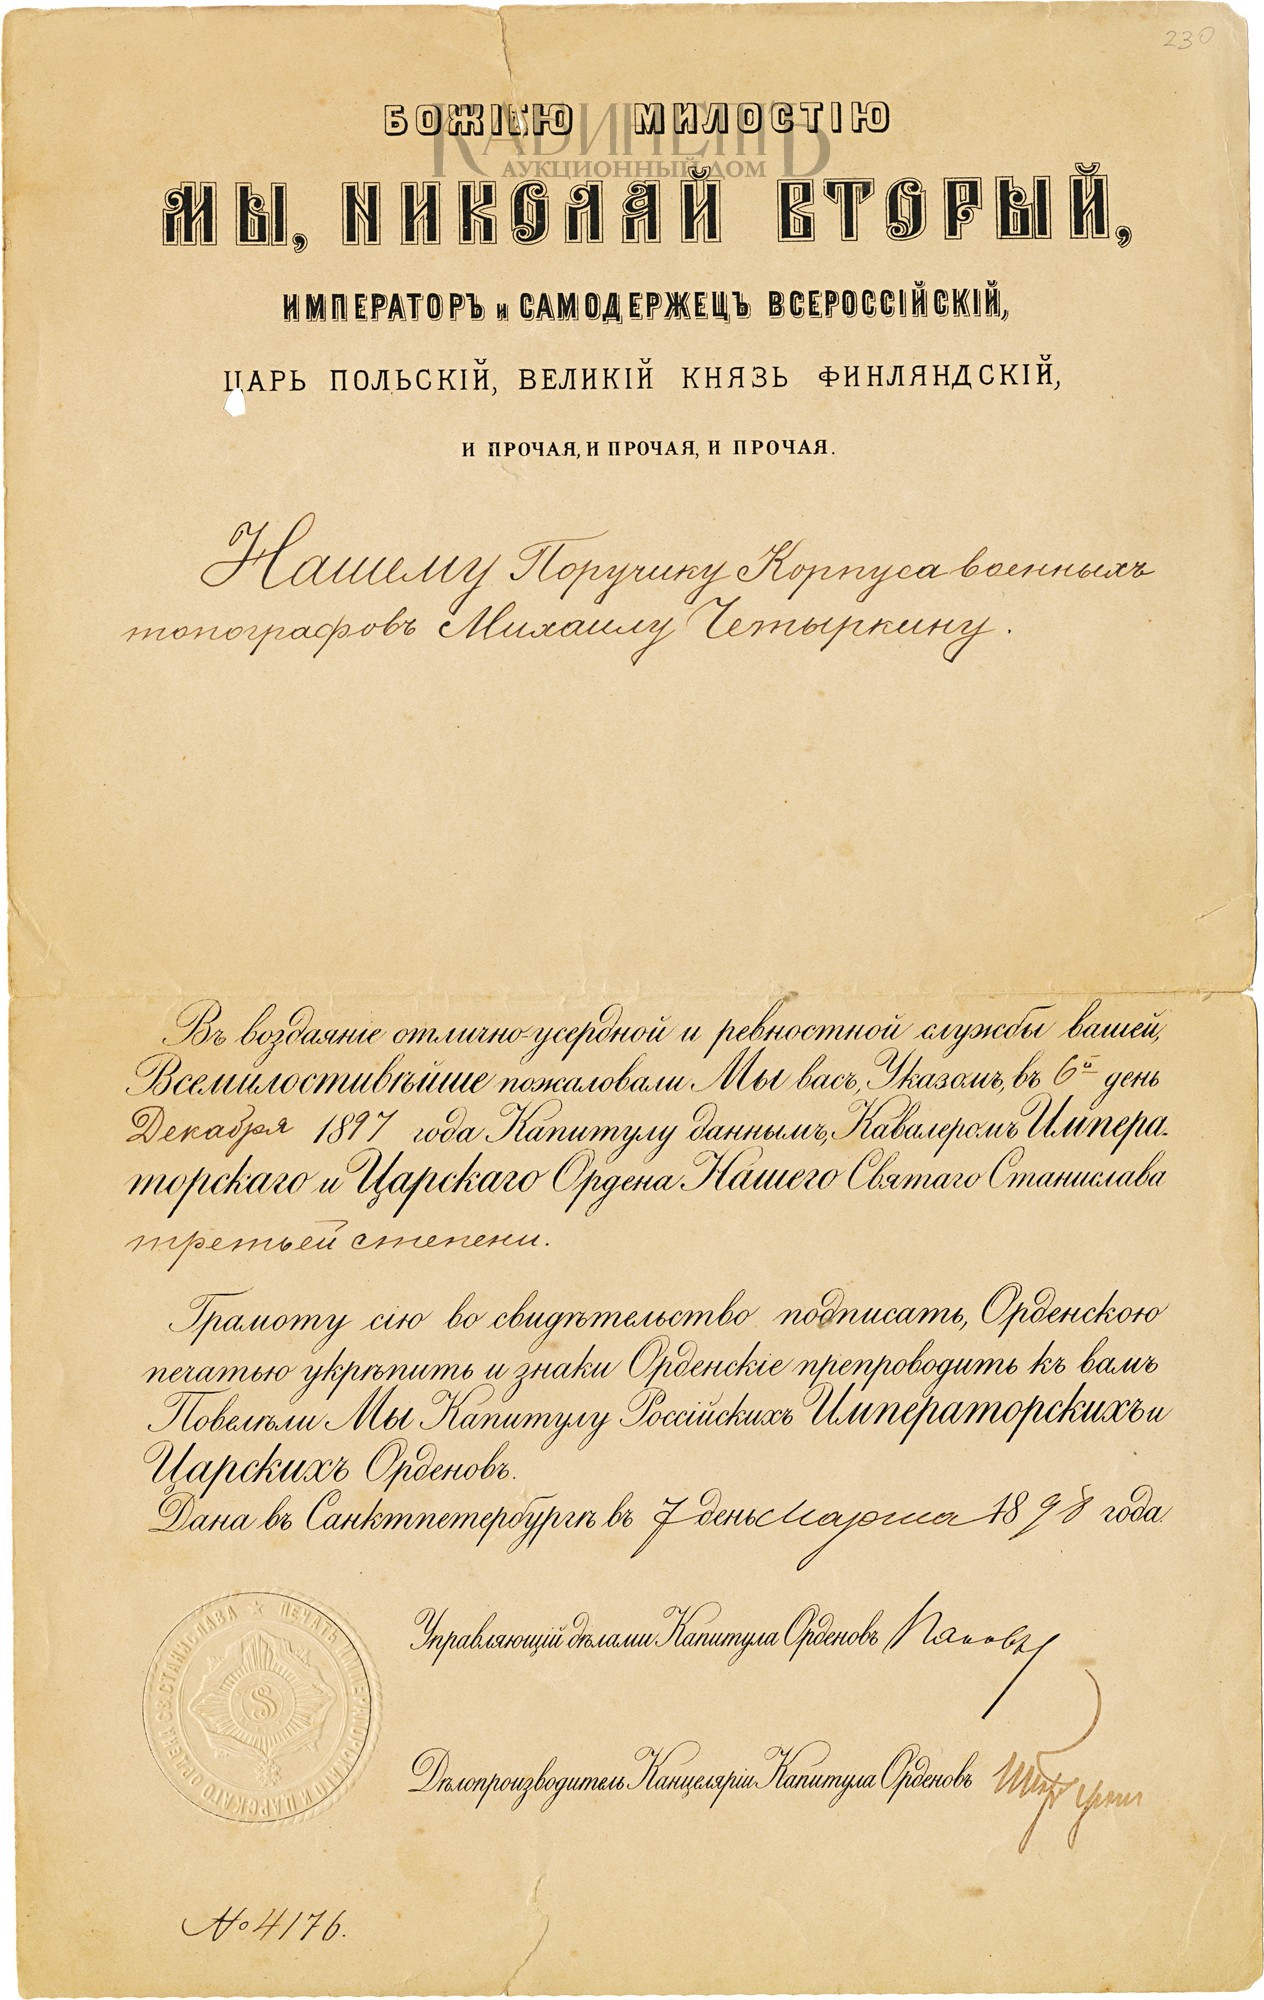 230
БОЖІЕЮ МИЛОСТІЮ
КАБИНЕТЪ
АУКЦИОННЫЙ ДОМ
МЫ, НИКОЛАЙ ВТОРЫЙ,
ИМПЕРАТОРЪ и САМОДЕРЖЕЦЪ ВСЕРОССІЙСКІЙ,
ЦАРЬ ПОЛЬСКІЙ, ВЕЛИКІЙ КНЯЗЬ ФИНЛЯНДСКІЙ,
И ПРОЧАЯ, И ПРОЧАЯ, И ПРОЧАЯ.
Нашему Поручику Корпуса военныхъ
топографовъ Михаилу Четыркину.
Въ воздаяніе отлично-усердной и ревностной службы вашей,
Всемилостивѣйше пожаловали Мы васъ, Указомъ, въ 6й день
Декабря 1897 года Капитулу даннымъ, Кавалеромъ Импера-
торскаго и Царскаго Ордена Нашего Святаго Станислава
третьей степени.
Грамоту сію во свидѣтельство подписать, Орденскою
печатью укрѣпить и знаки Орденскіе препроводить къ вамъ
Повелѣли Мы Капитулу Россійскихъ Императорскихъ и
Царскихъ Орденовъ.
Дана въ Санктпетербургѣ въ 7 день Марта 1898 года.
ПЕЧАТЬ ИМПЕРАТОРСКАГО И ЦАРСКАГО ОРДЕНА СВ. СТАНИСЛАВА
SS
Управляющій дѣлами Капитула Орденовъ Пановъ
Дѣлопроизводитель Канцеляріи Капитула Орденовъ
№ 4176.